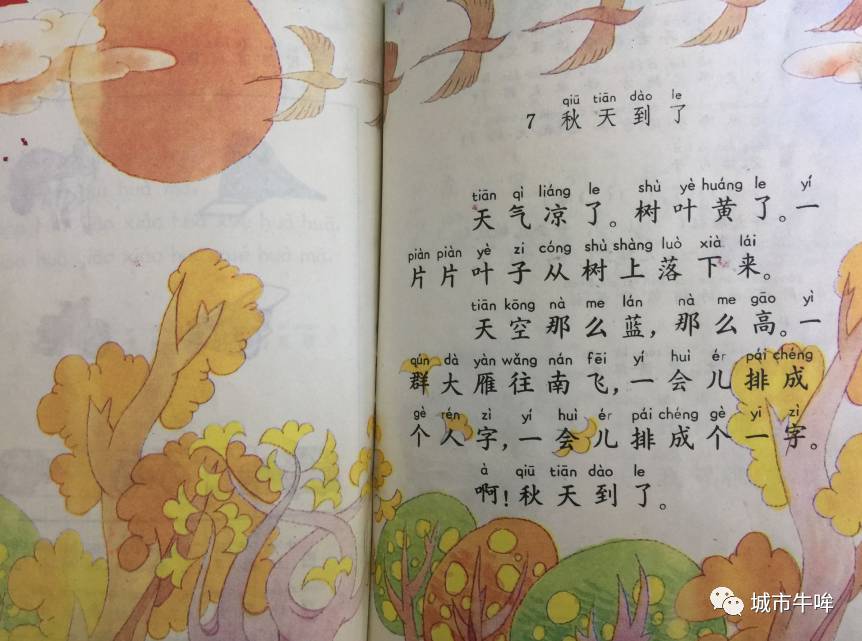 qiū tiān dào le
7 秋天到了
tiān qì liáng le shù yè huáng le yí
天气凉了。树叶黄了。一
piàn piàn yè zi cóng shù shàng luò xià lái
片片叶子从树上落下来。
tiān kōng nà me lán nà me gāo yì
天空那么蓝，那么高。一
qún dà yàn wǎng nán fēi yí huì ér pái chéng
群大雁往南飞，一会儿排成
gè rén zì yí huì ér pái chéng gè yī zì
个人字，一会儿排成个一字。
à qiū tiān dào le
啊！秋天到了。
城市牛哞